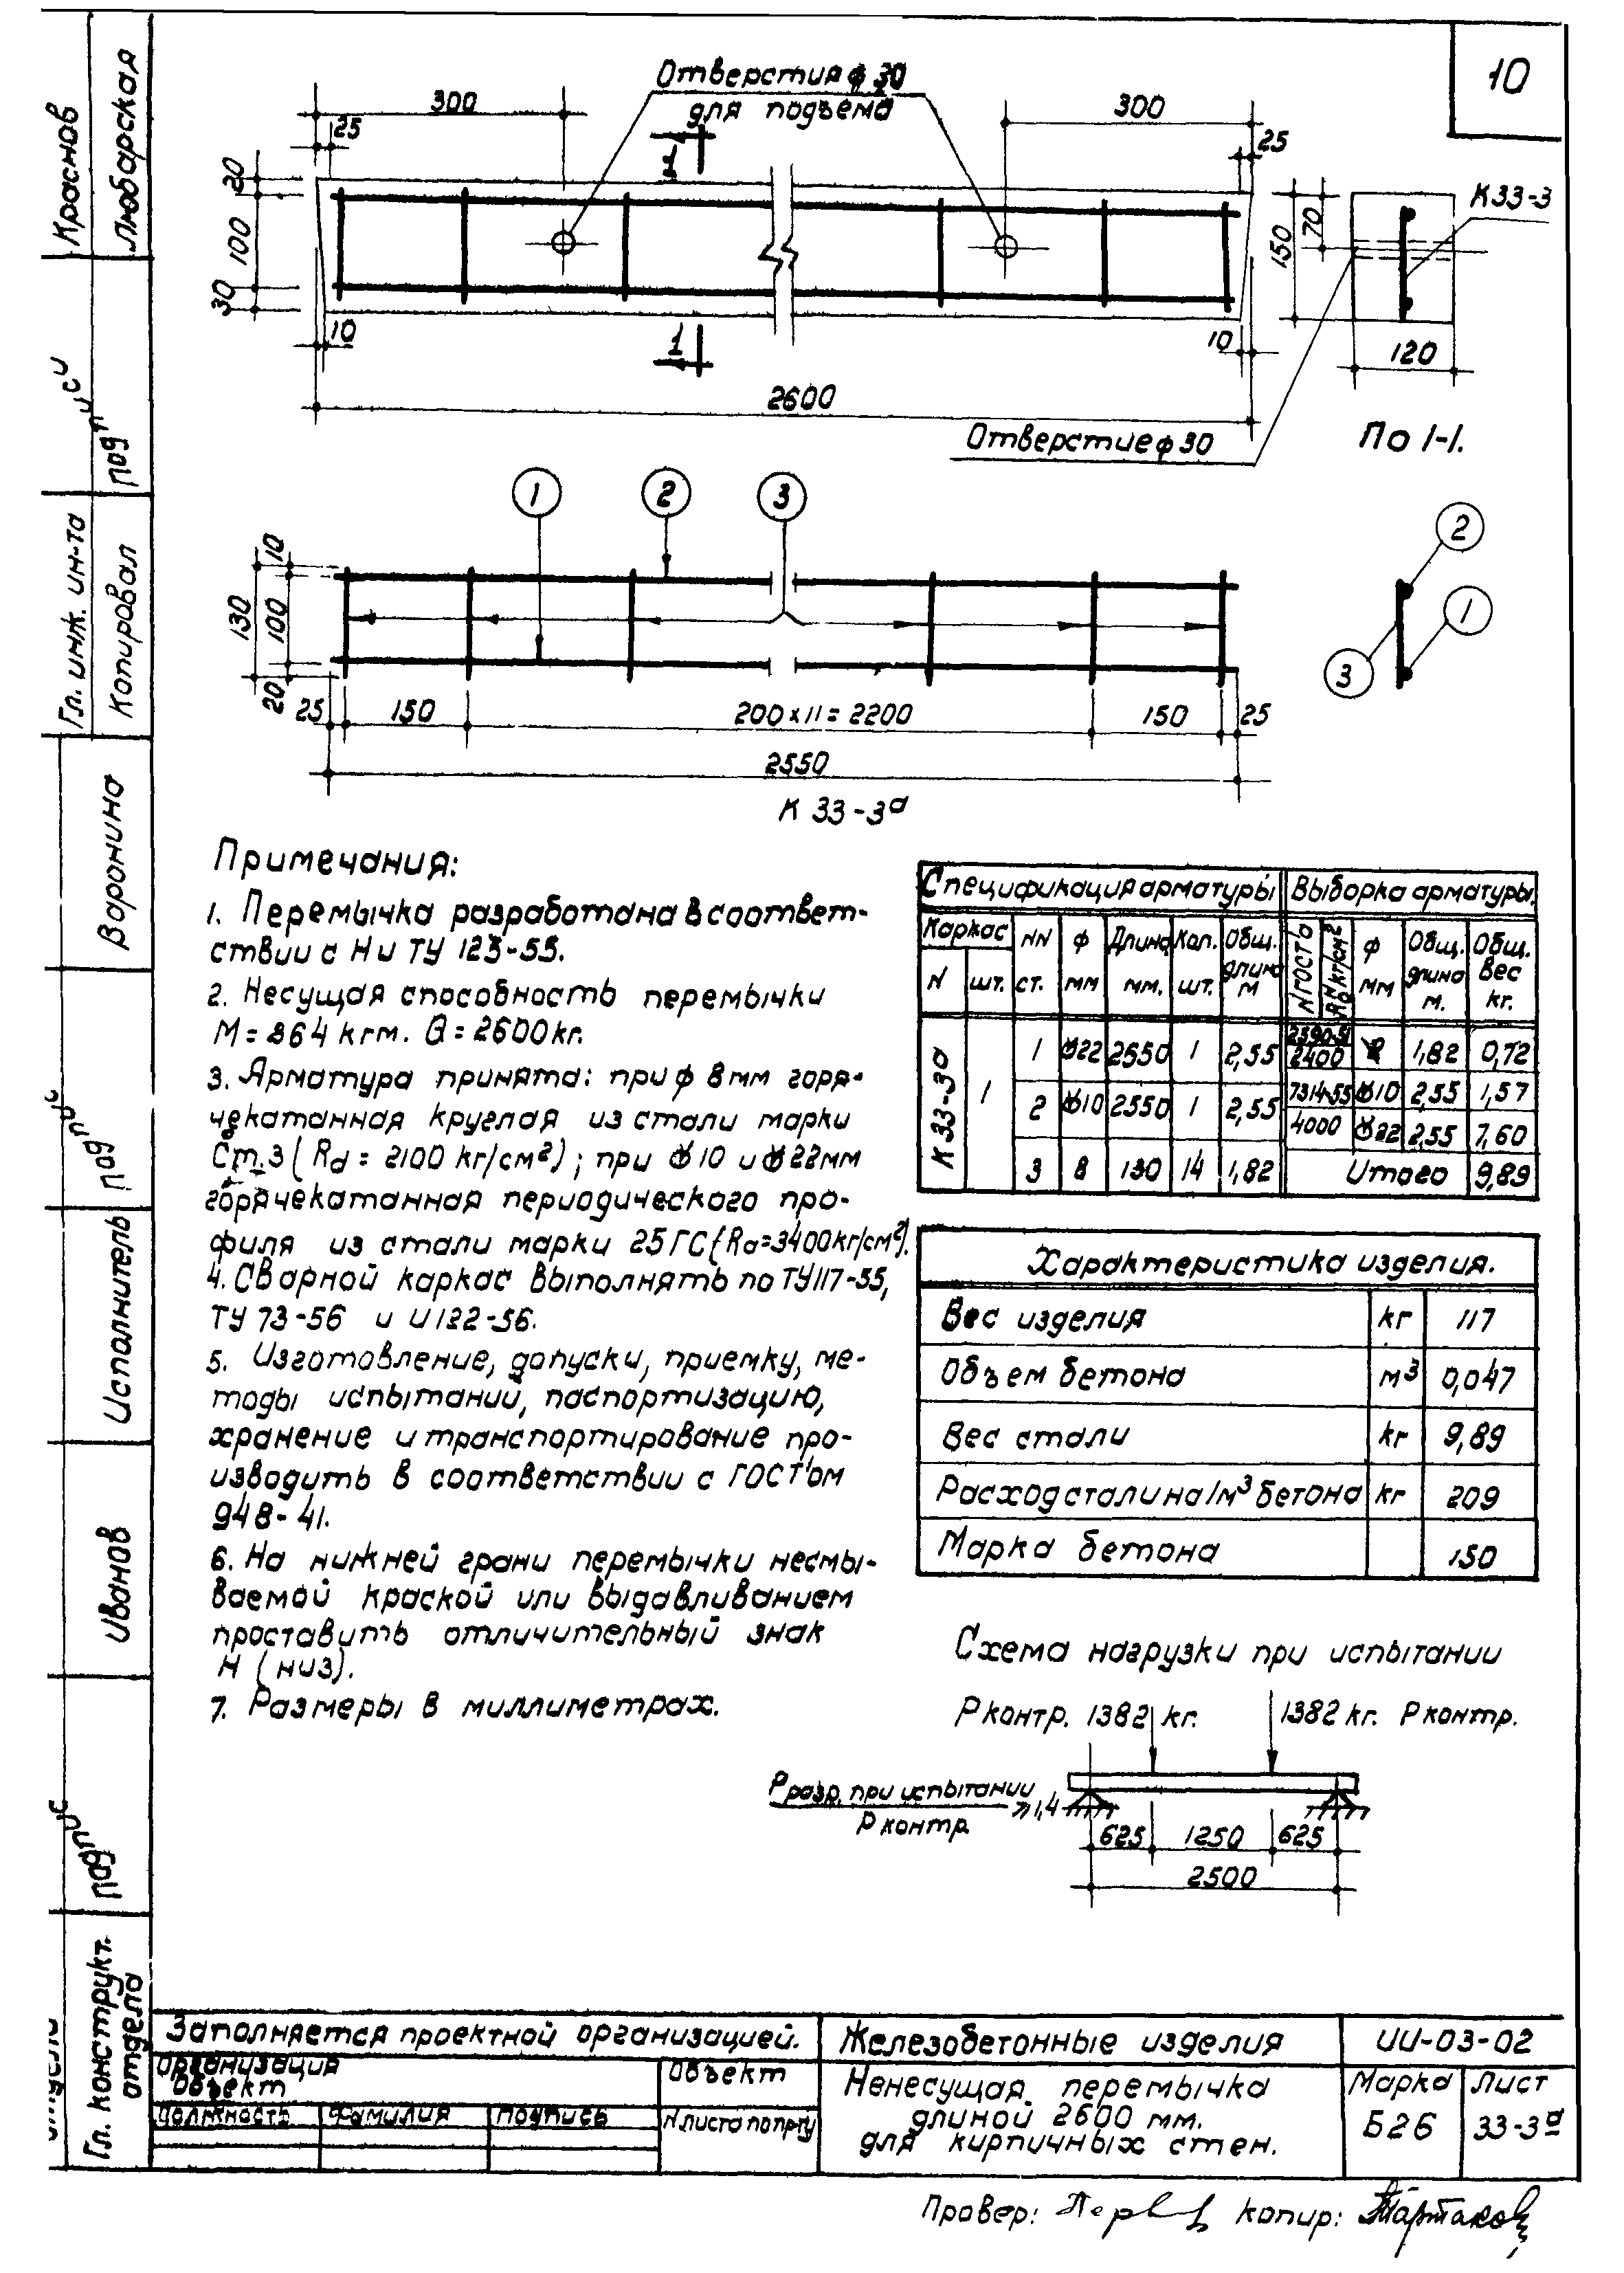 10
Отверстия ф 30
для подъема
300
300
25
25
1
20
100
30
10
1
10
2600
150
70
К 33-3
120
Отверстие ф 30
По 1-1.
1
2
3
2
1
3
10
130
100
20
25
150
200 х 11 = 2200
150
25
2550
К 33-3а
Примечания:
1. Перемычка разработана в соответ-
ствии с Н и ТУ 123-55.
2. Несущая способность перемычки
М = 864 кгм. Q = 2600 кг.
3. Арматура принята: при ф 8 мм горя-
чекатанная круглая из стали марки
Ст.3 (Ra = 2100 кг/см²); при ф 10 и ф 22 мм
горячекатанная периодического про-
филя из стали марки 25 ГС (Ra = 3400 кг/см²).
4. Сварной каркас выполнять по ТУ 117-55,
ТУ 73-56 и И 122-56.
5. Изготовление, допуски, приемку, ме-
тоды испытаний, паспортизацию,
хранение и транспортирование про-
изводить в соответствии с ГОСТ'ом
948-41.
6. На нижней грани перемычки несмы-
ваемой краской или выдавливанием
проставить отличительный знак
Н (низ).
7. Размеры в миллиметрах.
Спецификация арматуры Выборка арматуры.
Каркас NN ф Длина Кол. Общ. N ГОСТа Rн кг/см² ф Общ. Общ.
N шт. ст. мм мм. шт. длина м мм длина м. вес кг.
К 33-3а 1 1 ф22 2550 1 2,55 2590-51 2400 8 1,82 0,72
2 ф10 2550 1 2,55 7314-55 ф10 2,55 1,57
4000 ф22 2,55 7,60
3 8 130 14 1,82 Итого 9,89
Характеристика изделия.
Вес изделия кг 117
Объем бетона м³ 0,047
Вес стали кг 9,89
Расход стали на 1м³ бетона кг 209
Марка бетона 150
Схема нагрузки при испытании
Р контр. 1382 кг. 1382 кг. Р контр.
Р разр. при испытании
Р контр ≥ 1,4
625 1250 625
2500
Заполняется проектной организацией.
Организация
Объект
Объект
Должность Фамилия Подпись N листа по пр-ту
Железобетонные изделия
Ненесущая перемычка
длиной 2600 мм.
для кирпичных стен.
ИИ-03-02
Марка Лист
Б26 33-3а
Провер: Копир:
Краснов
Любарская
Подписи
Гл. инж. ин-та
Копировал
Воронина
Исполнитель
Иванов
Гл. конструкт.
отдела